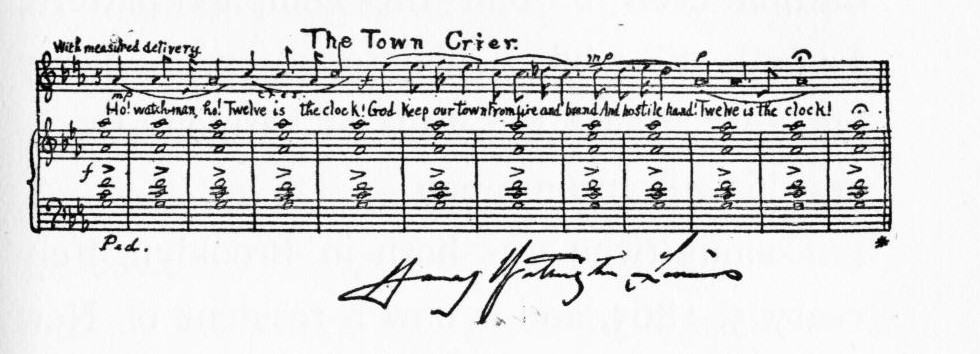 The Town Crier.
With measured delivery
mp cres. f mp p
Ho! watchman, ho! Twelve is the clock! God keep our town From fire and brand And hostile hand! Twelve is the clock!
f
Ped. *
Harvey Worthington Loomis